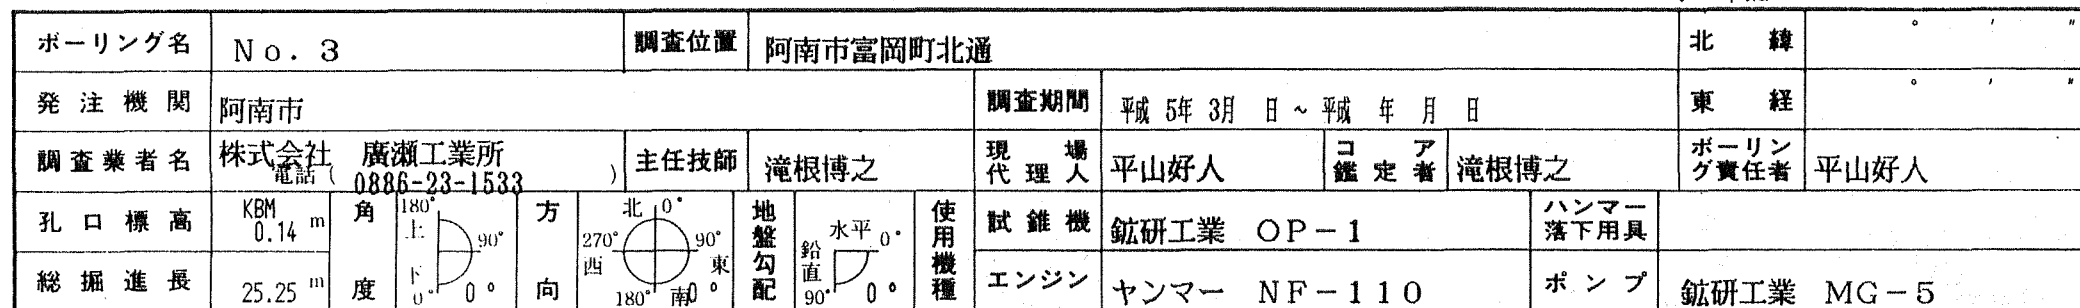 ボーリング名 No. 3 調査位置 阿南市富岡町北通 北緯 ° ′ ″
発注機関 阿南市 調査期間 平成 5年 3月 日 ~ 平成 年 月 日 東経 ° ′ ″
調査業者名 株式会社 廣瀬工業所
電話( 0886-23-1533 )
主任技師 滝根博之 現場代理人 平山好人 コア鑑定者 滝根博之 ボーリング責任者 平山好人
孔口標高 KBM 0.14 m
総掘進長 25.25 m
角度 180° 上 90° 下 0° 0°
方向 北 0° 90° 東 180° 南 270° 西 0°
地盤勾配 水平 0° 鉛直 90° 0°
使用機種
試錐機 鉱研工業 OP-1 ハンマー落下用具
エンジン ヤンマー NF-110 ポンプ 鉱研工業 MG-5